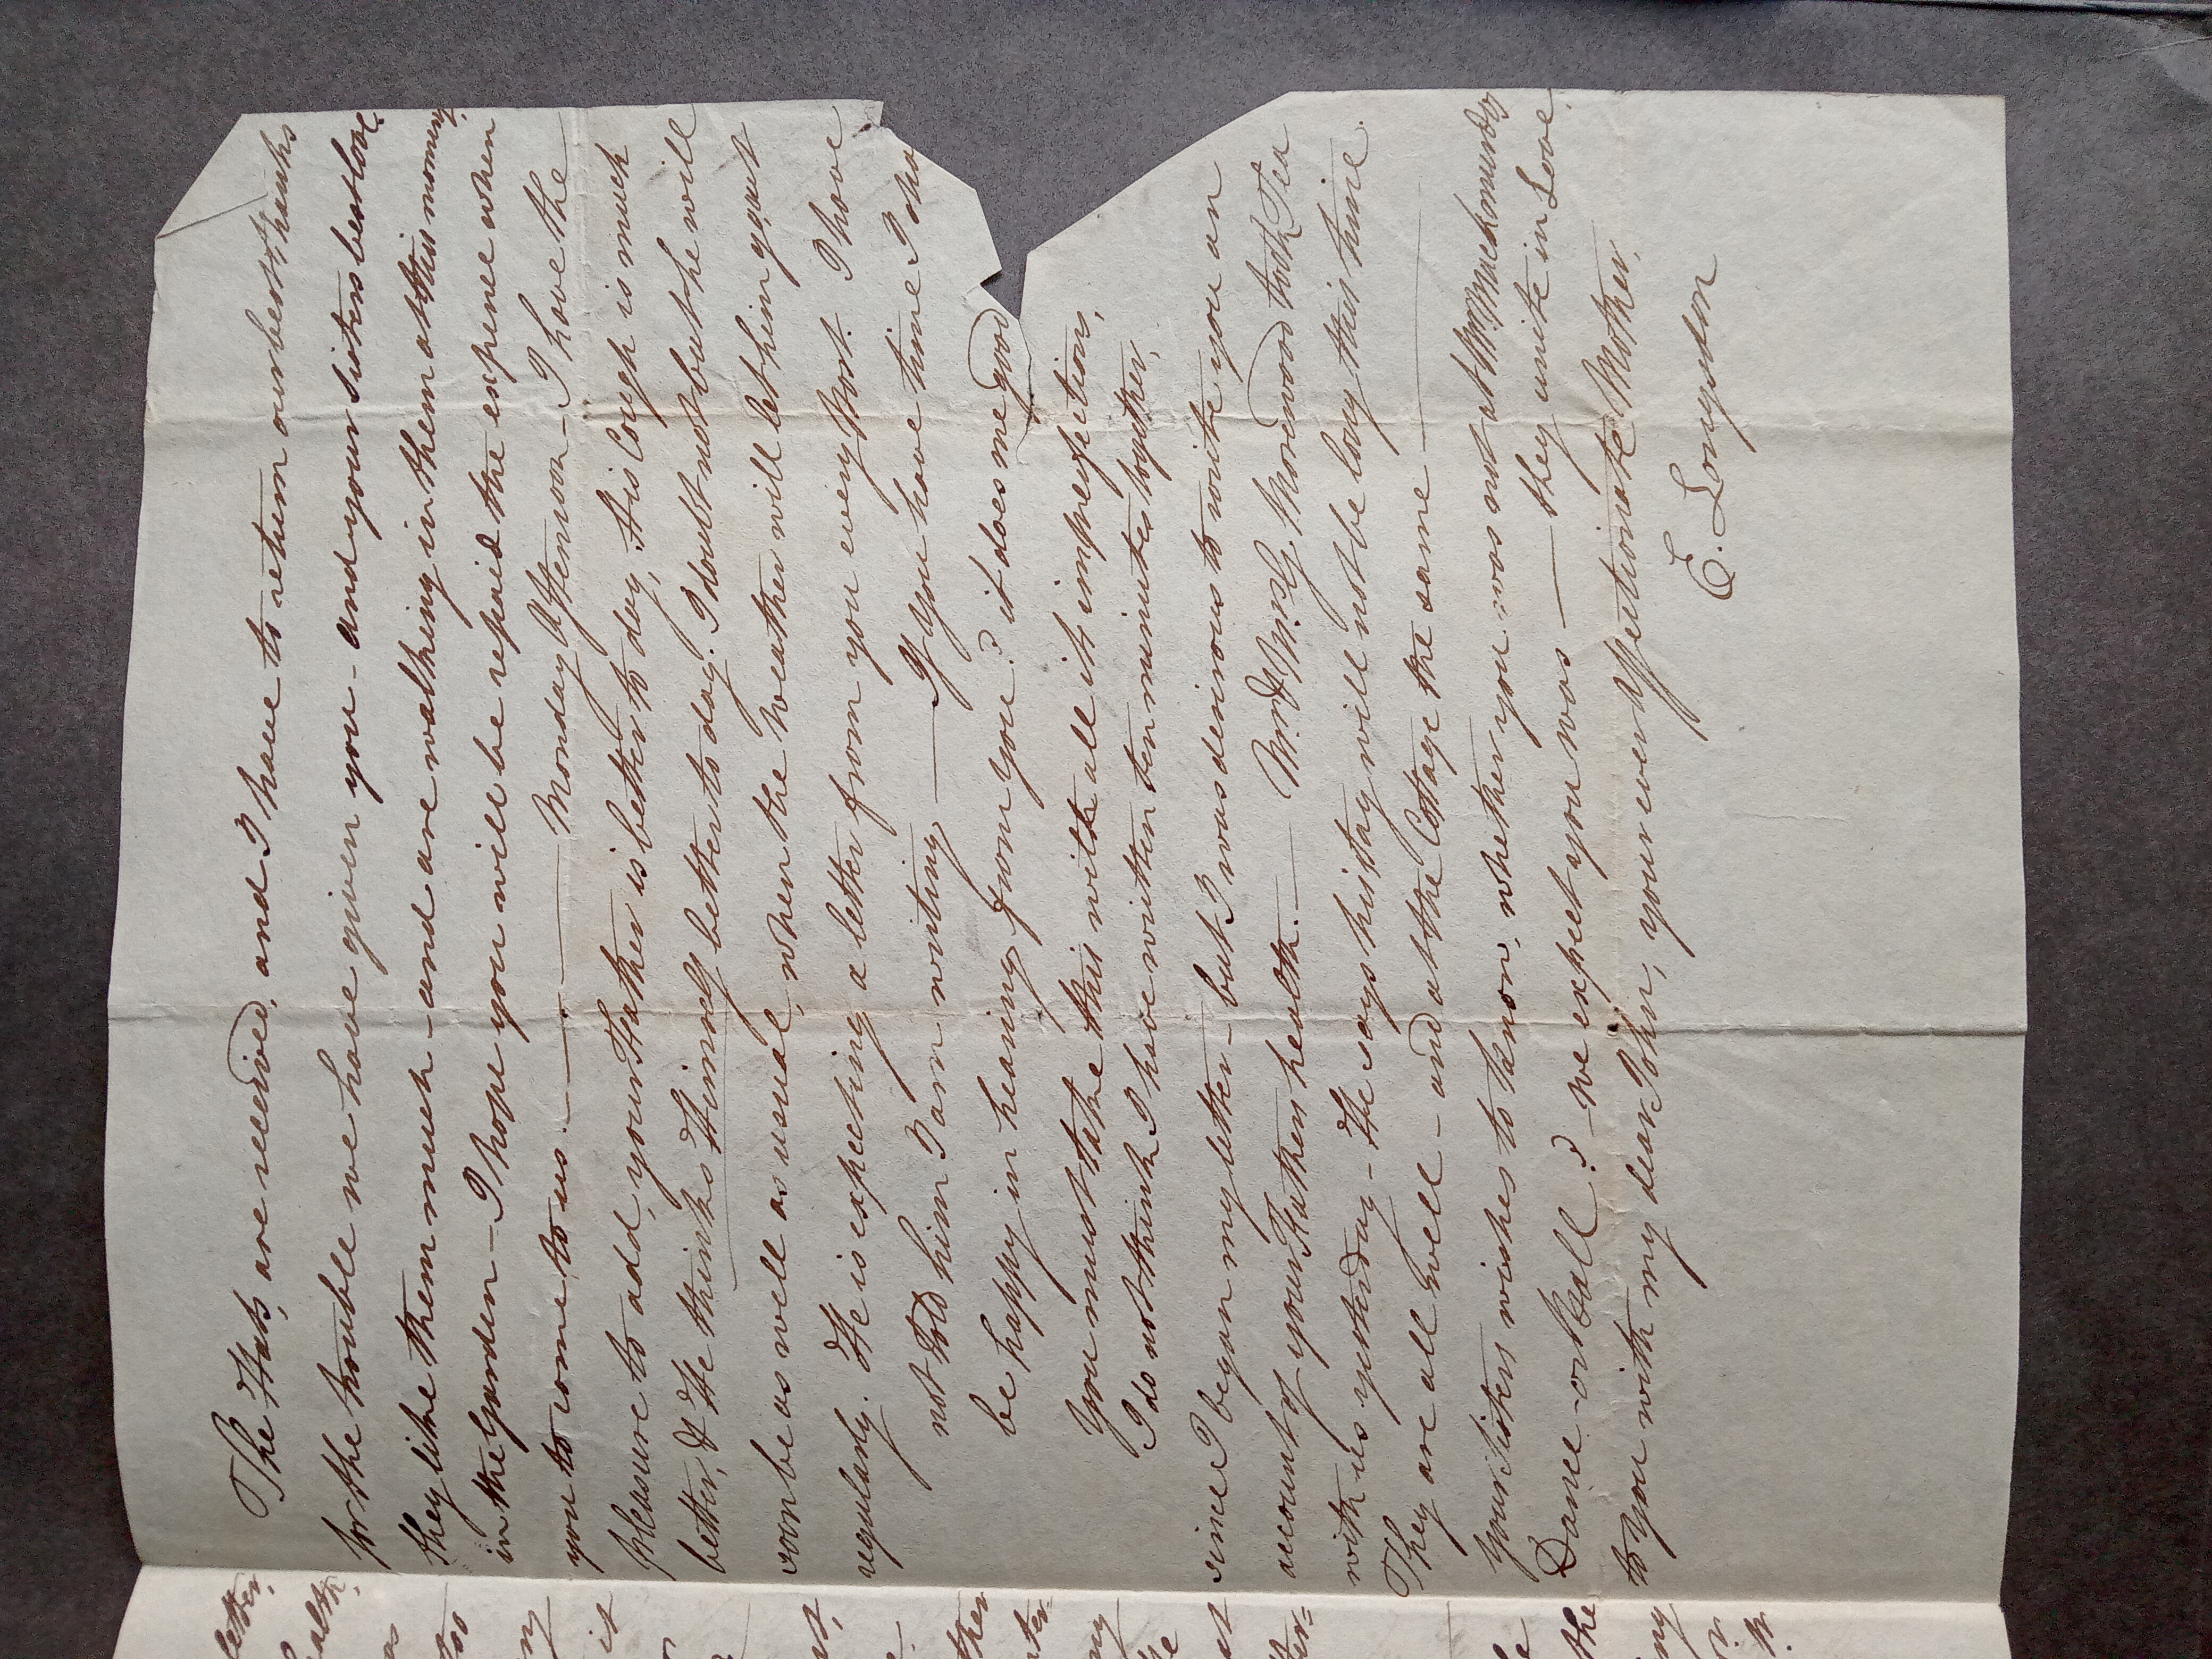 The Hats, are received, and I have to return our best thanks
for the trouble we have given you - and your Sisters best love,
they like them much - and are walking in them at this moment,
in the Garden - I hope you will be repaid the expence when
you to come, to us. — Monday Afternoon - I have the
pleasure to add, your Father is better to day, His Cough is much
better, & He thinks Himself better to day. I doubt not but he will
soon be as well as usual, when the Weather will let him get out
regularly. He is expecting a letter from you every Post. I have
not told him I am writing — If you have time I sha
be happy in hearing from you? it does me good
You must take this with all its imperfections,
I do not think I have written ten minutes together,
since I began my letter - but I was desirous to write you an
account of your Fathers health. — Mr. & Mrs. G. Thornwood took Tea
with us yesterday - He says his stay will not be long this time
They are all well - and at the Cottage the same —
Your Sisters wishes to know, whether you was not at
Dance - or Ball? - we expect you was — they unite in Love,
to you with my dear John, your ever Affectionate Mother,
E. Longsdon
letter,
health,
as
too
ny
it
ther
nter=
my
the
at
ter=
the
my